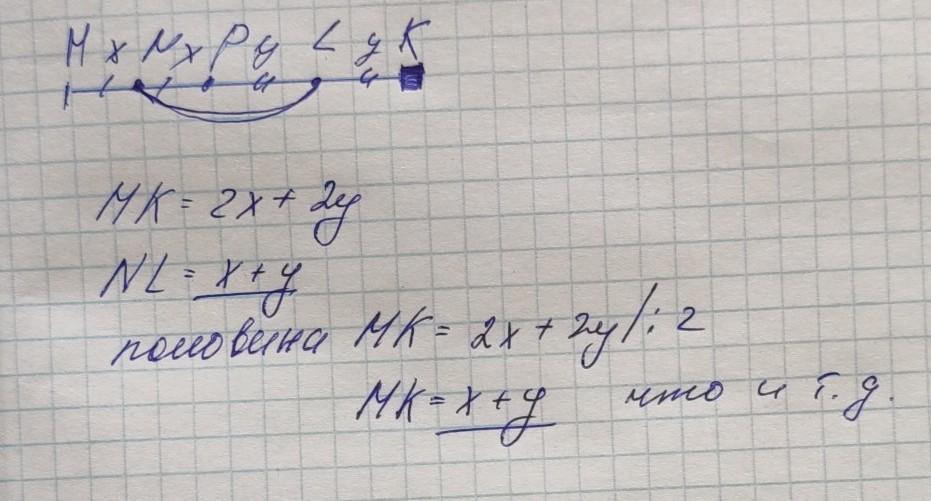 M x N x P y L y K
MK = 2x + 2y
NL = x + y
половина MK = 2x + 2y / : 2
MK = x + y что и т. д.